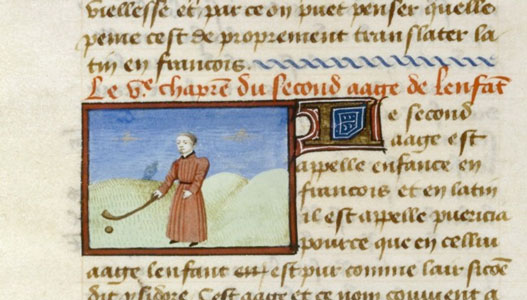 viellesse et par ce on puet penser quelle
peine cest de proprement translater la
tin en francois.
Le Ve chapitre du second aage de lenfant
Le second
aage est
appelle enfance en
francois et en latin
il est appelle puericia
pource que en cellui
aage lenfant est pur comme lair sicõe
dit ysidore. Cest aage et ce nom conuient a